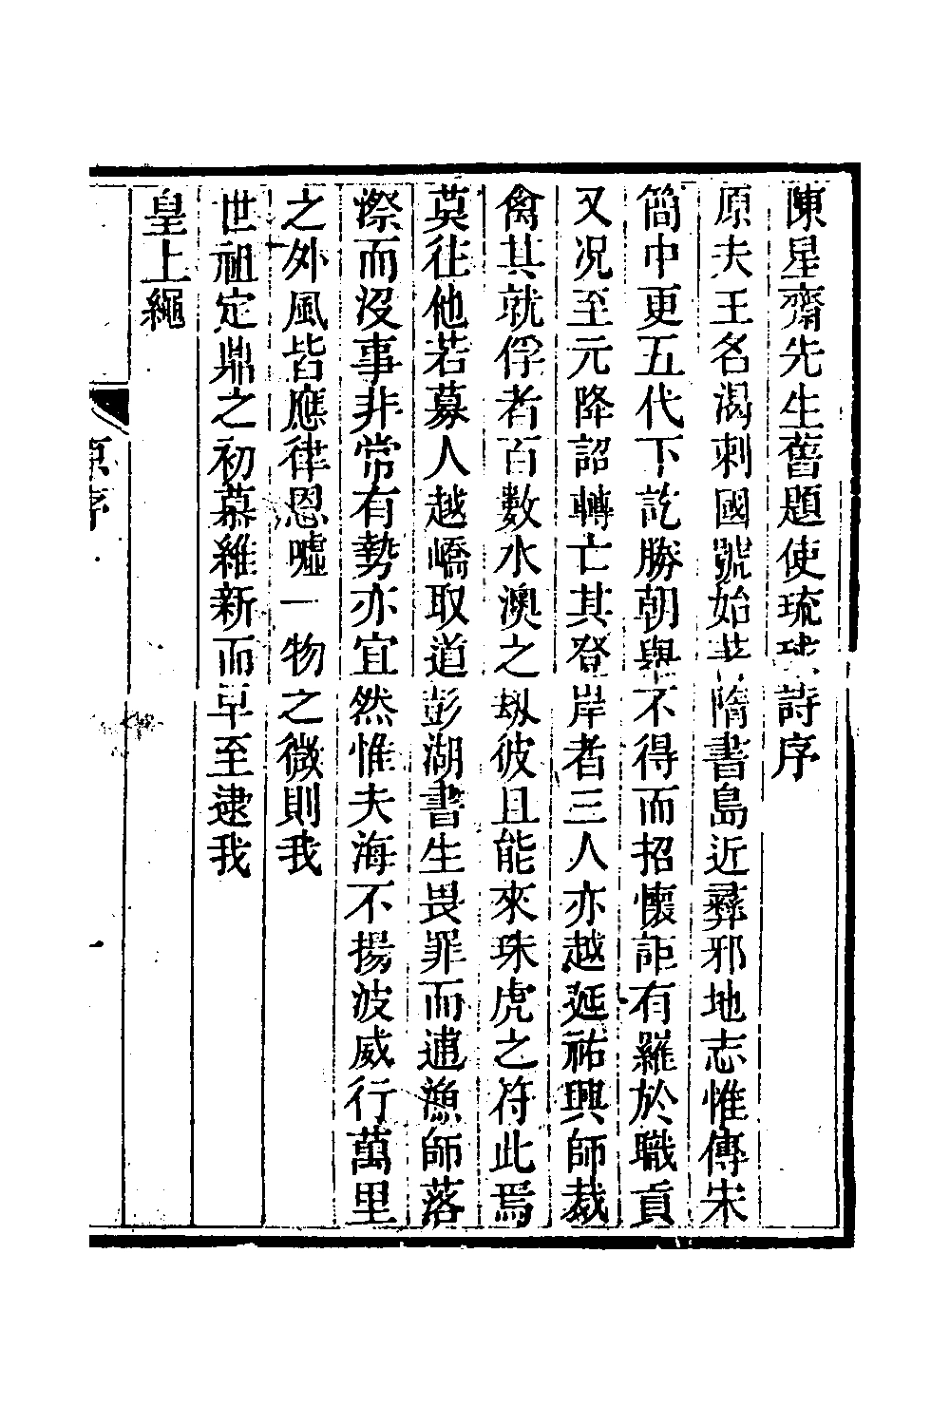 陳星齋先生舊題使琉球詩序
原夫王名渴刺國號始華隋書島近彞邪地志惟傳宋
簡中更五代下訖勝朝與不得而招懷詎有羅於職貢
又况至元降詔轉亡其登岸者三人亦越延祐興師裁
禽其就俘者百數水澳之劫彼且能來珠虎之符此焉
莫往他若募人越嶠取道彭湖書生畏罪而逋漁師落
漈而沒事非常有勢亦宜然惟夫海不揚波威行萬里
之外風皆應律恩噓一物之微則我
世祖定鼎之初慕維新而早至逮我
皇上繩
原序
一